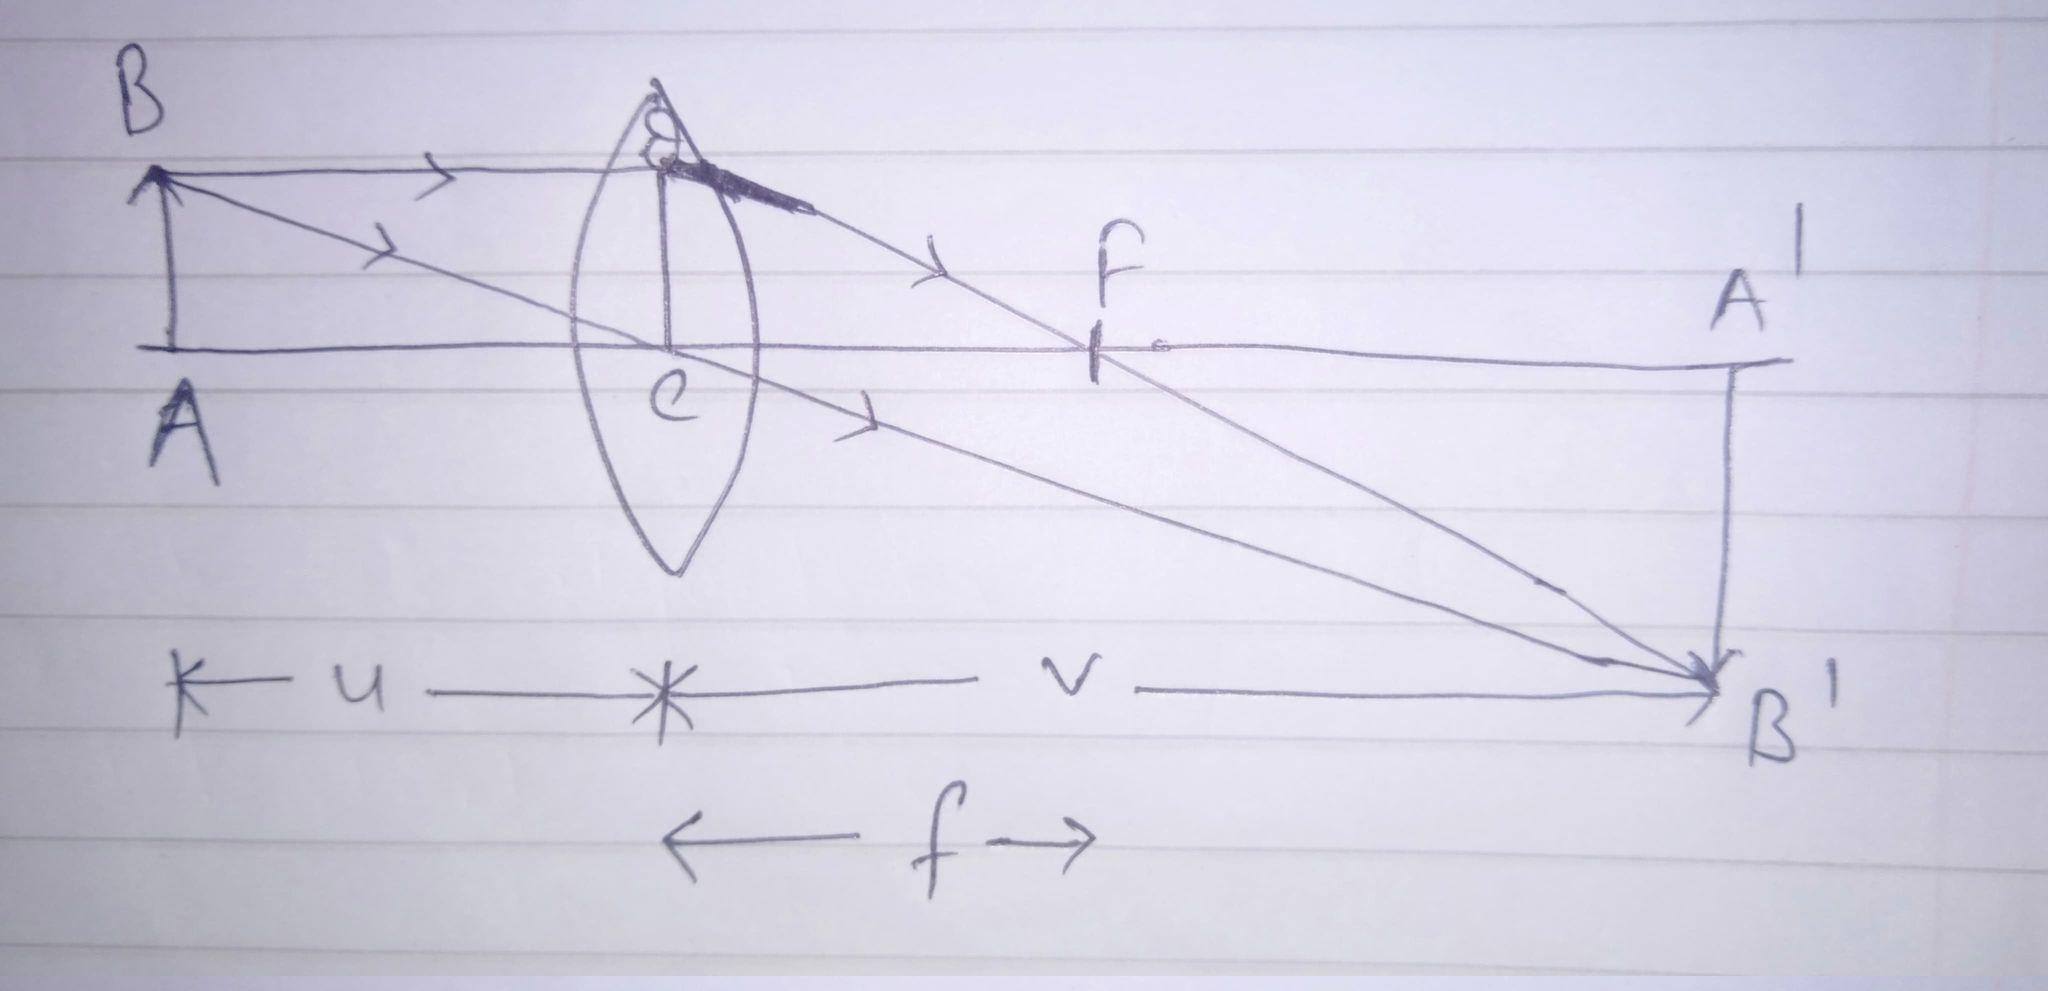 B
F
A'
A
C
u v
B'
f